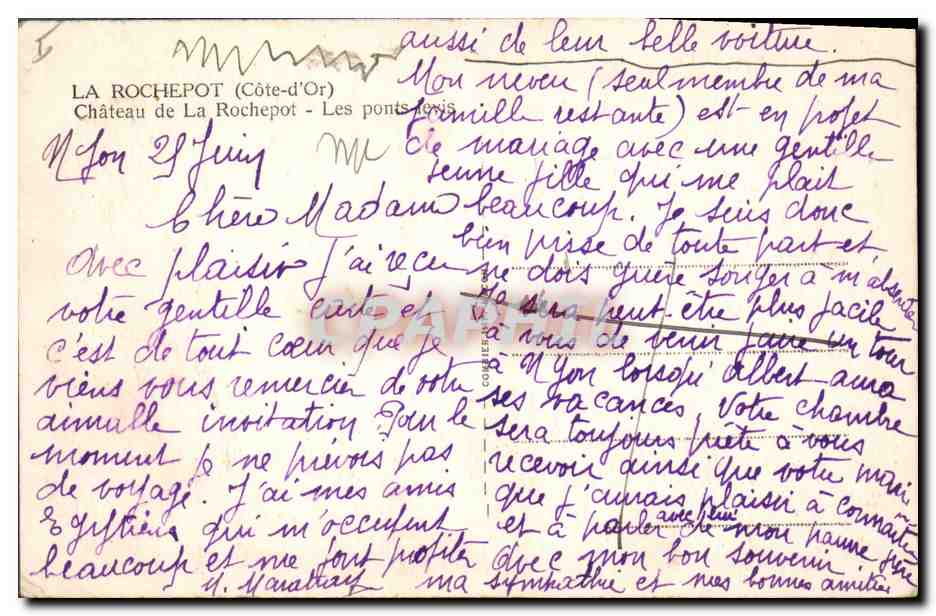 LA ROCHEPOT (Côte-d'Or)
Château de La Rochepot - Les ponts-levis
Nyon 25 Juin
Chère Madame
Avec plaisir j'ai reçu
votre gentille carte et
c'est de tout cœur que je
viens vous remercier de votre
aimable invitation. Pour le
moment je ne prévois pas
de voyage. J'ai mes amis
Egyptiens qui m'occupent
beaucoup et me font profiter
aussi de leur belle voiture.
Mon neveu (seul membre de ma
famille restante) est en projet
de mariage avec une gentille
jeune fille qui me plait
beaucoup. Je suis donc
bien prise de toute part et
ne dois guère songer à m'absenter
Il sera peut-être plus facile
à vous de venir faire un tour
à Nyon lorsqu'Albert aura
ses vacances. Votre chambre
sera toujours prête à vous
recevoir ainsi que votre mari
que j'aurais plaisir à connaître
et à parler avec lui de mon pauvre frère
Avec mon bon souvenir
ma sympathie et mes bonnes amitiés
COMBIER
CPAPHIL